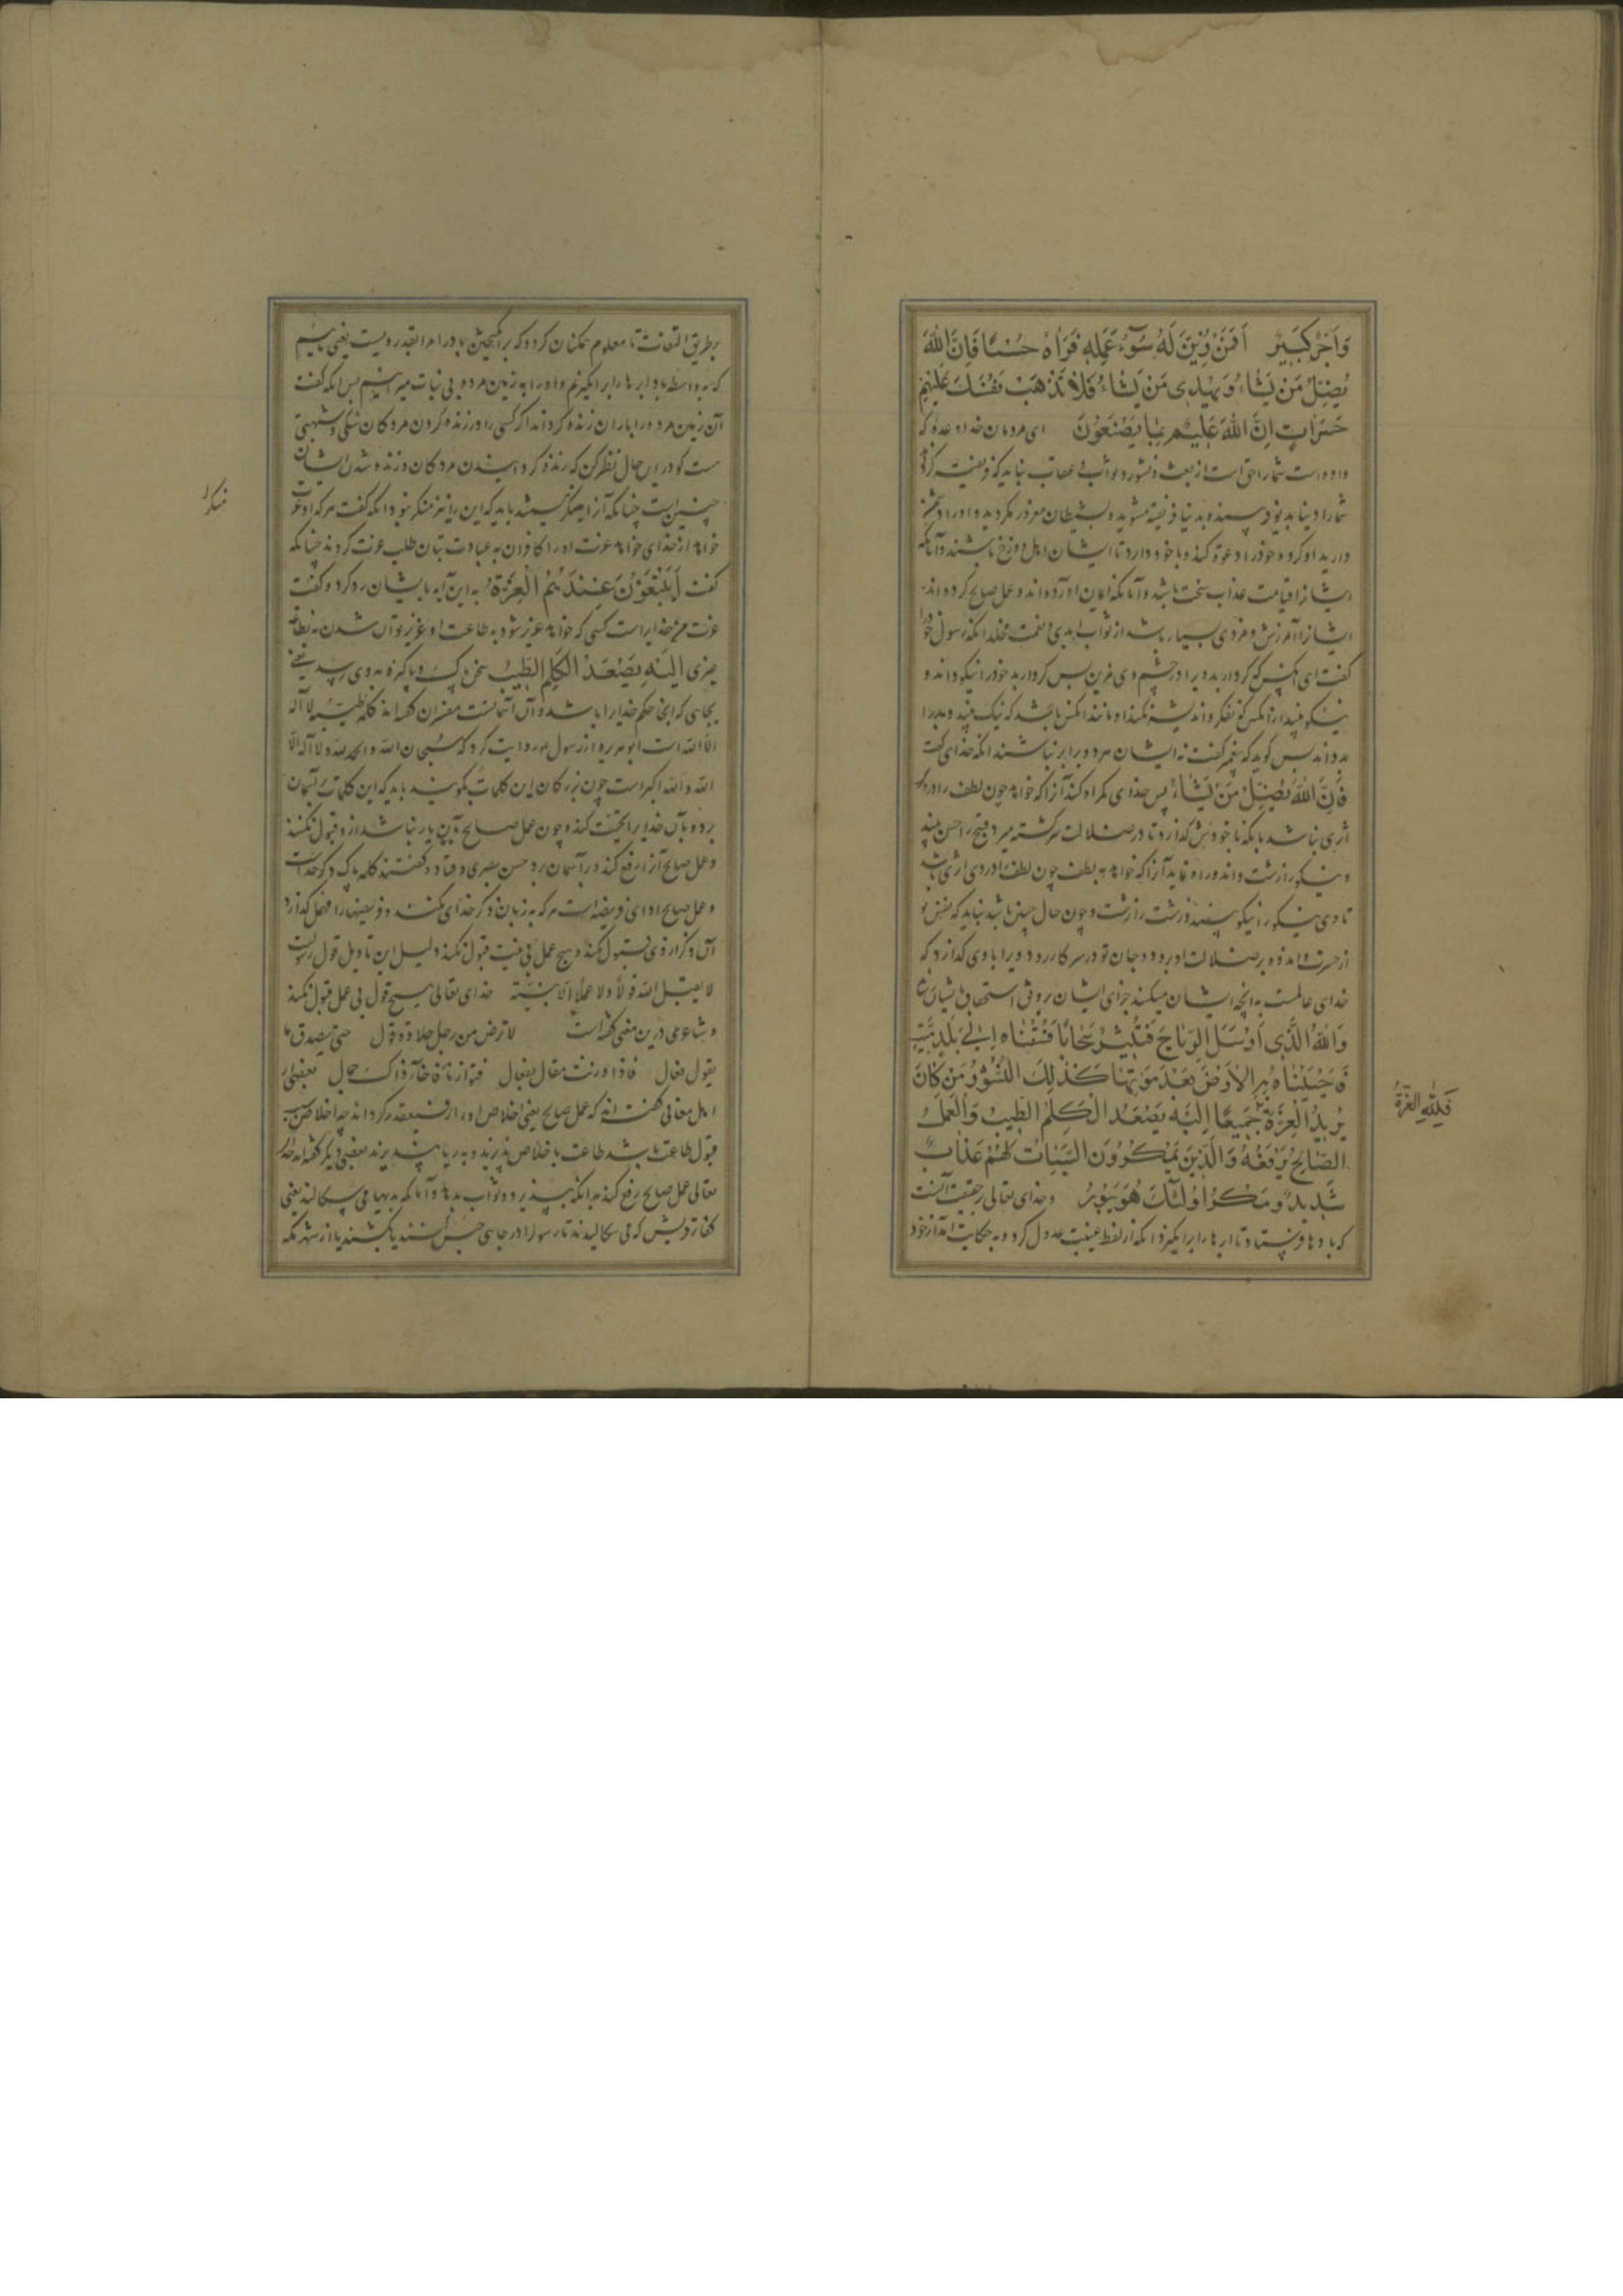 وَاَجْرٌ كَبِيرٌ اَفَمَنْ زُيِّنَ لَهُ سُوۤءُ عَمَلِهٖ فَرَاٰهُ حَسَنًا فَاِنَّ اللّٰهَ
يُضِلُّ مَنْ يَشَاۤءُ وَيَهْدِى مَنْ يَشَاۤءُ فَلَا تَذْهَبْ نَفْسُكَ عَلَيْهِمْ
حَسَرَاتٍ اِنَّ اللّٰهَ عَلِيمٌ بِمَا يَصْنَعُونَ ای مردمان خدا وعده که
داده است شما را حق است از بعث و نشور و ثواب و عقاب نباید که فریفته کرداند
شما را دنیا بدو فریسنده بدنیا فریفته مشوید و بشیطان مغرور مکردید و او را دشمن
دارید او کروه خود را دعوة کند و با خود دارد تا ایشان اهل دوزخ باشند و آنانکه
ایشانرا قیامت عذاب سخت باشد و آنانکه ایمان آورده‌اند و عمل صالح کرده‌اند
ایشانرا آمرزش و مزدی بسیار باشد از ثواب ابدی و نعمت مخلد انکه رسول خود را
کفت ای کس که کردار بد ویرا در چشم وی مزین بس کردار بد خود را نیکو داند و
نیکو پندارد انکس که تفکر و اندیشه نکند او مانند انکس باشد که نیک بیند و بد را
بد داند بس کوید که بیغمبر کفت نه ایشان هر دو برابر نباشند انکه خدای کفت
فَاِنَّ اللّٰهَ يُضِلُّ مَنْ يَشَاۤءُ پس خدای کمراه کند آنرا که خواهد چون لطف را در وی
اثری نباشد بلکه با خودش کذارد تا در ضلالت سرکشته میرد قبیح را حسن بیند
و نیکو را زشت داند و راه نماید آنرا که خواهد به لطف چون لطف را در وی اثری باشد
تا وی نیکو را نیکو بیند و زشت را زشت و چون حال چنین باشد نباید که نفس تو
از حسرت و اندوه بر ضلالت او برود و جان تو در سر کار رود ویرا با وی کذارد که
خدای عالمست به انچه ایشان میکنند جزای ایشان بر وفق استحقاق بایشان رساند
وَاللّٰهُ الَّذِى اَرْسَلَ الرِّيَاحَ فَتُثِيرُ سَحَابًا فَسُقْنَاهُ اِلٰى بَلَدٍ مَيِّتٍ
فَاَحْيَيْنَاهُ بِهِ الْاَرْضَ بَعْدَ مَوْتِهَا كَذٰلِكَ النُّشُوْرُ مَنْ كَانَ
يُرِيدُ الْعِزَّةَ جَمِيعًا اِلَيْهِ يَصْعَدُ الْكَلِمُ الطَّيِّبُ وَالْعَمَلُ
فَلِلّٰهِ الْعِزَّةُ
الصَّالِحُ يَرْفَعُهُ وَالَّذِينَ يَمْكُرُونَ السَّيِّئَاتِ لَهُمْ عَذَابٌ
شَدِيدٌ وَمَكْرُ اُولٰئِكَ هُوَ يَبُوْرُ و خدای تعالی بر حقیقت آنست
که بادها فرستاد تا ابرها را برانکیزد انکه از لفظ غیبت عدول کرد و به حکایت آمد از خود
بطریق التفات تا معلوم همکنان کردد که برانکیختن باد را هم القدر ویست یعنی ماییم
که به واسطه باد ابرها را برانکیزیم و او را به زمین مرده بی نبات میرانیم بس انکه کفت
آن زمین مرده را باران زنده کرداند اکر کسی را در زنده کردن مردکان شکی و شبهتی
هست کو در این حال نظر کن که زنده کردانیدن مردکان و زنده شدن ایشان
چنین است چنانکه آنرا منکر نمیشد باید که این را نیز منکر نبود انکه کفت هرکه او عزت
منکر
خواهد از خدای خواهد عزت او را کافران به عبادت بتان طلب عزت کردند چنانکه
کفت اَيَبْتَغُوْنَ عِنْدَهُمُ الْعِزَّةَ به این آیه بایشان رد کرد و کفت
عزت مر خدایراست کسی که خواهد عزیز شود به طاعت او عزیز توان شدن نه بطاعت
چیزی اِلَيْهِ يَصْعَدُ الْكَلِمُ الطَّيِّبُ سخن پاک و پاکیزه به وی رسد یعنی
بجایی که انجا حکم خدایرا باشد و آن آسمانست مفسران کفته‌اند کلمه طیبه لا اله
الا الله است ابو هریره از رسول صم روایت کرد که سبحان الله و الحمد لله و لا اله الا
الله و الله اکبر است چون بزرکان این کلمات بکویند باید که این کلمات بر آسمان
برد و بآن خدایرا تحیت کند و چون عمل صالح با آن یار نباشد از او قبول نکنند
و عمل صالح آنرا رفع کند و بر آسمان برد حسن بصری و قتاده کفتند کلمه پاک ذکر خداست
و عمل صالح ادای فریضه است هرکه به زبان ذکر خدای بکند و فریضها را مهمل کذارد
آن ذکر از وی قبول نکند و هیچ عمل بی نیت قبول نکند دلیل این تاویل قول رسولست
لا یقبل الله قولا و لا عملا الا بنیة خدای تعالی هیچ قول بی عمل قبول نکند
و شاعری درین معنی کفته است لا ترض من رجل حلاوة قول حتی یصدق ما
یقول فعال فاذا وزنت مقاله بفعال فتوازنا فاخاء ذاک جمال بعضی از
اهل معانی کفته‌اند که عمل صالح یعنی اخلاص او را رفیع قدر کرداند چه اخلاص سبب
قبول طاعت باشد طاعت باخلاص پذیرند و به ریا نپذیرند بعضی دیکر کفته‌اند خدای
تعالی عمل صالح رفع کند به انکه بپذیرد و ثواب بدهد و آنانکه بدیها می سکالند یعنی
کفار قریش که می سکالیدند تا رسول را در جایی حبس کنند یا بکشند یا از شهر مکه